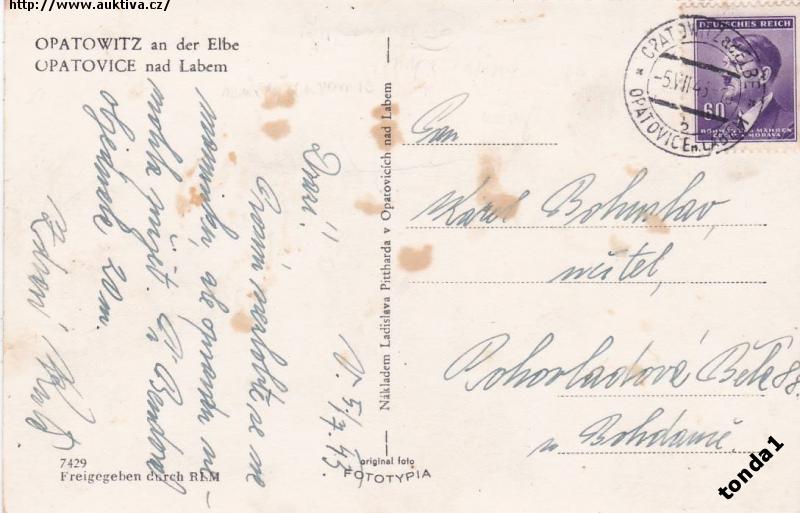 http://www.auktiva.cz/
OPATOWITZ an der Elbe
OPATOVICE nad Labem
DEUTSCHES REICH
60
BÖHMEN UND MÄHREN
ČECHY A MORAVA
OPATOWITZ a.d. ELBE
-5.VII.43
OPATOVICE n. LABEM
2
V. 5./7. 43.
Drazí!
Prosím nezlobte se na
maminku, ale opravdu ne-
mohla přijet.
objednala 20 m.
Zdraví
Nákladem Ladislava Pittharda v Opatovicích nad Labem
Pan
Karel Bohuslav,
učitel,
Pohovladová Bělá 88
u Bohdanče.
7429
Freigegeben durch RLM
original foto
FOTOTYPIA
tonda1